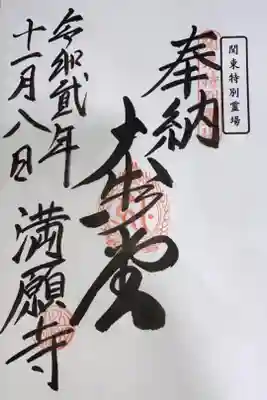 関東特別霊場
奉納
大悲堂
令和貮年
十一月八日
満願寺